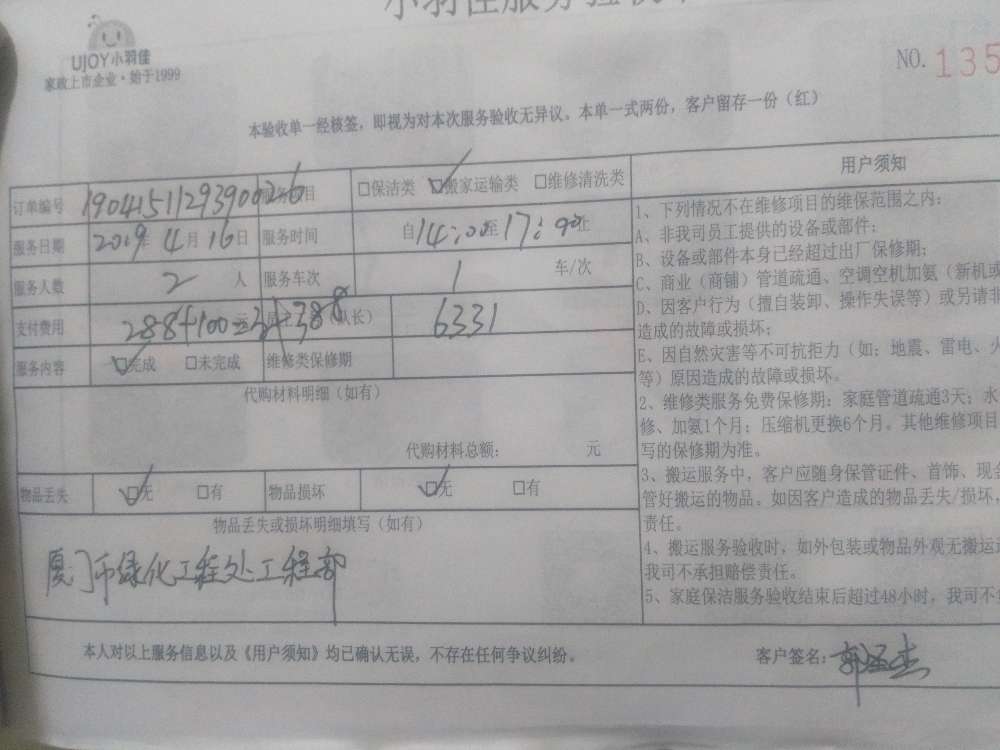 UJOY小羽佳
家政上市企业·始于1999
NO. 135
本验收单一经核签，即视为对本次服务验收无异议。本单一式两份，客户留存一份（红）
订单编号 1904151129390026 服务 目 □保洁类 ☑搬家运输类 □维修清洗类
服务日期 2019年 4月 16日 服务时间 自14:00至17:00止
服务人数 2 人 服务车次 1 车/次
支付费用 288+100= 388 （队长） 6331
服务内容 ☑完成 □未完成 维修类保修期
代购材料明细（如有）
代购材料总额： 元
物品丢失 ☑无 □有 物品损坏 ☑无 □有
物品丢失或损坏明细填写（如有）
厦门市绿化工程处工程部
用户须知
1、下列情况不在维修项目的维保范围之内：
A、非我司员工提供的设备或部件；
B、设备或部件本身已经超过出厂保修期；
C、商业（商铺）管道疏通、空调空机加氨（新机或
D、因客户行为（擅自装卸、操作失误等）或另请非
造成的故障或损坏；
E、因自然灾害等不可抗拒力（如：地震、雷电、火
等）原因造成的故障或损坏。
2、维修类服务免费保修期：家庭管道疏通3天；水
修、加氨1个月；压缩机更换6个月。其他维修项目
写的保修期为准。
3、搬运服务中，客户应随身保管证件、首饰、现金
管好搬运的物品。如因客户造成的物品丢失/损坏，
责任。
4、搬运服务验收时，如外包装或物品外观无搬运
我司不承担赔偿责任。
5、家庭保洁服务验收结束后超过48小时，我司不
本人对以上服务信息以及《用户须知》均已确认无误，不存在任何争议纠纷。
客户签名：